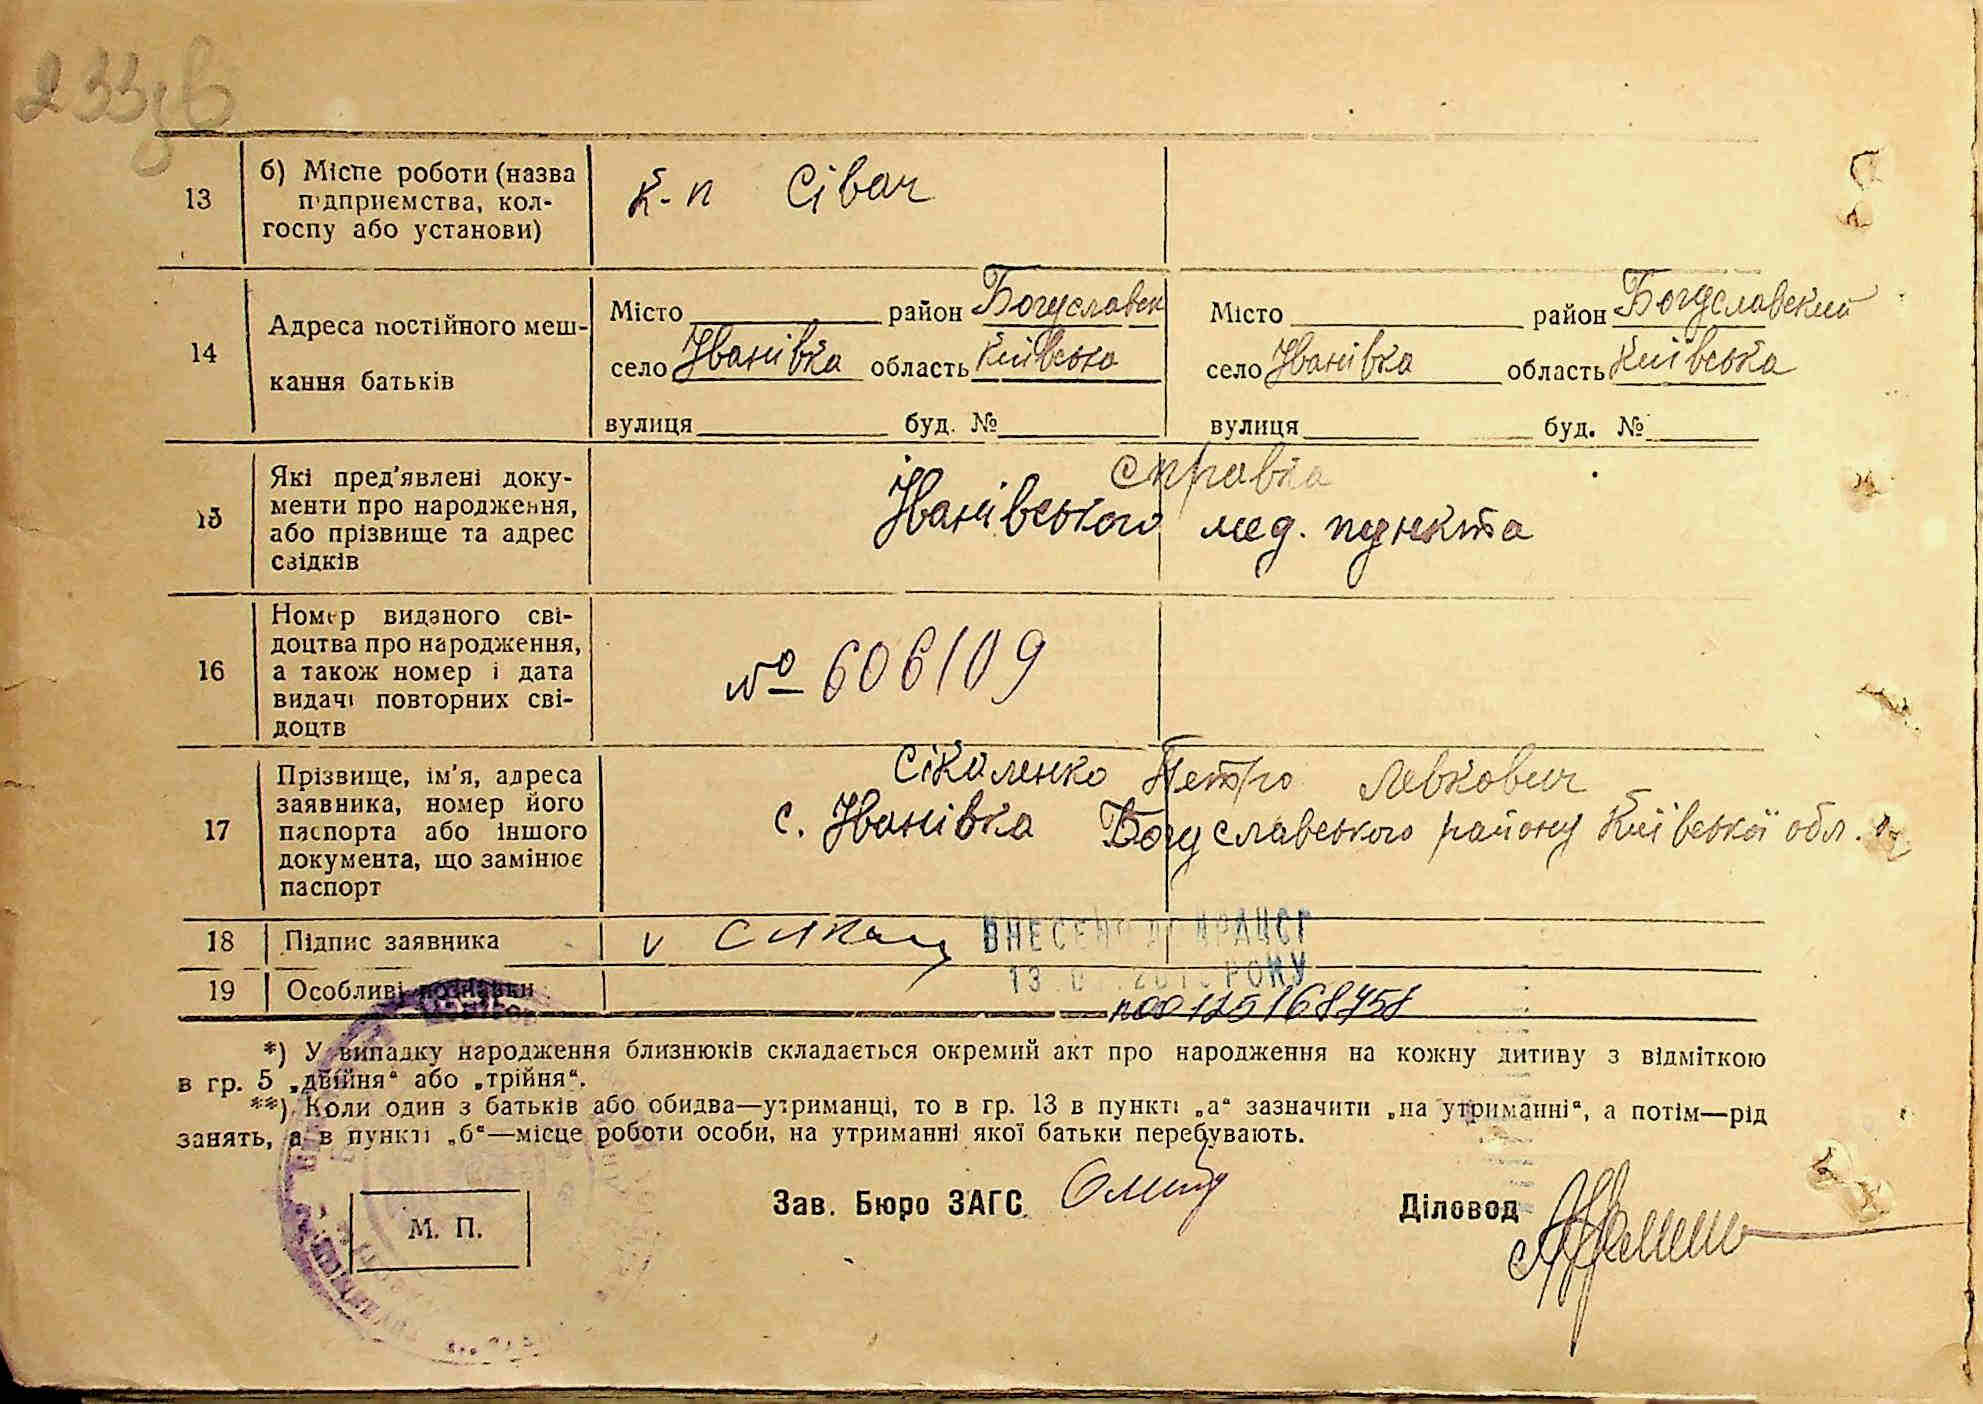 233зв
13 б) Місце роботи (назва
підприємства, кол-
госпу або установи)
к-п Сівач
14 Адреса постійного меш-
кання батьків
Місто район Богуславск
село Іванівка область Київська
вулиця буд. №
Місто район Богуславский
село Іванівка область Київська
вулиця буд. №
15 Які пред'явлені доку-
менти про народження,
або прізвище та адрес
свідків
справка
Іванівського мед. пункта
16 Номер виданого сві-
доцтва про народження,
а також номер і дата
видачі повторних сві-
доцтв
№ 606109
17 Прізвище, ім'я, адреса
заявника, номер його
паспорта або іншого
документа, що замінює
паспорт
Сікаленко Петро Левкович
с. Іванівка Богуславського району Київської обл.
18 Підпис заявника
v Сікал
ВНЕСЕНО ДО ДРАЦСГ
РОКУ
19 Особливі позначки
п00125168758
*) У випадку народження близнюків складається окремий акт про народження на кожну дитину з відміткою
в гр. 5 „двійня“ або „трійня“.
**) Коли один з батьків або обидва—утриманці, то в гр. 13 в пункті „а“ зазначити „на утриманні“, а потім—рід
занять, а в пункті „б“—місце роботи особи, на утриманні якої батьки перебувають.
Зав. Бюро ЗАГС
Діловод
М. П.